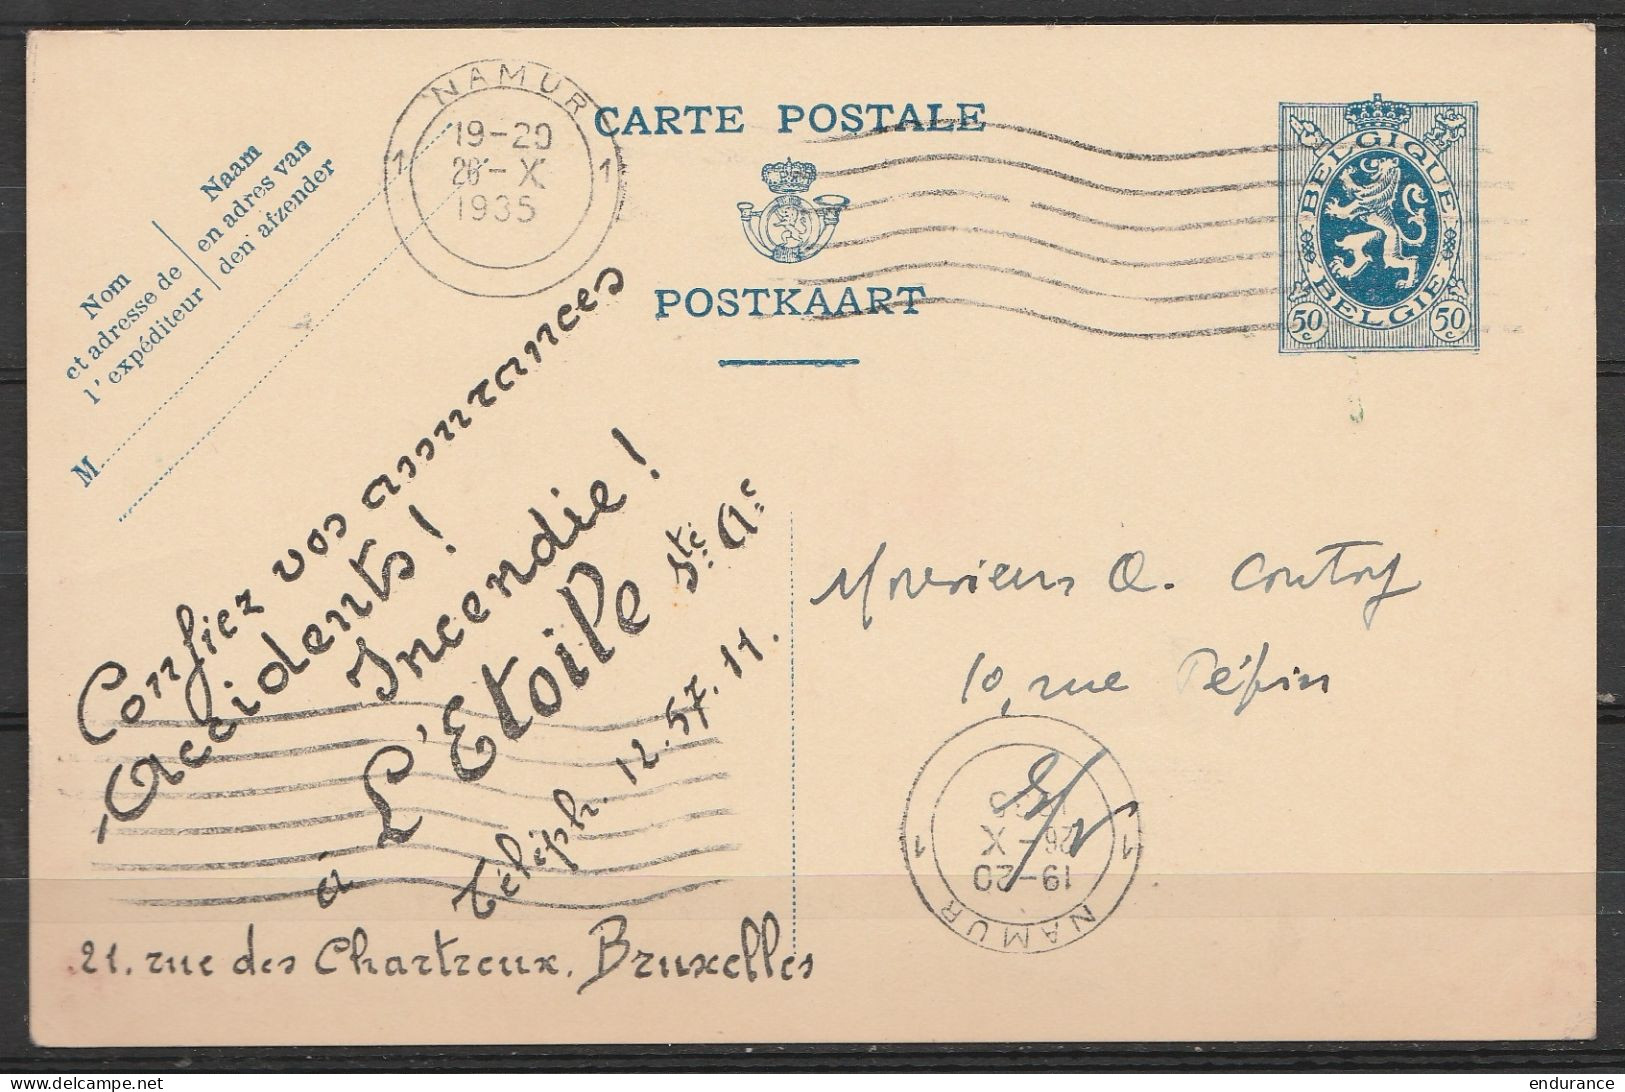 NAMUR
1 19-20 1
26-X
1935
CARTE POSTALE
POSTKAART
BELGIQUE
BELGIE
50 c 50 c
Nom
et adresse de
l'expéditeur
Naam
en adres van
den afzender
M
Confiez vos assurances
Accidents!
Incendie!
à L'Etoile Sté Ae
Téléph. 12.57.11.
21. rue des Chartreux. Bruxelles
Monsieur A.
10, rue Pépin
NAMUR
1 19-20 1
26-X
1935
delcampe.net
endurance